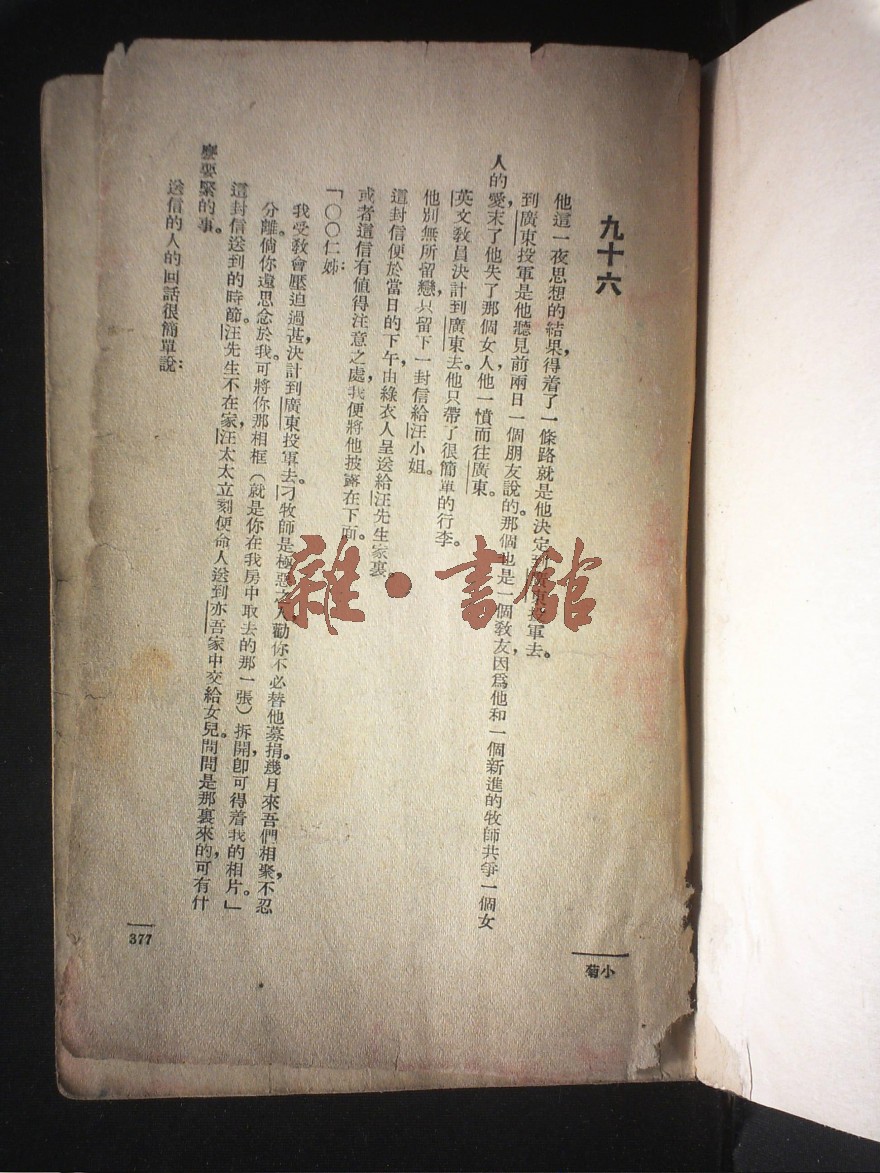 九十六
他這一夜思想的結果，得着了一條路就是他決定到廣東投軍去。
到廣東投軍是他聽見前兩日一個朋友說的。那個也是一個教友，因爲他和一個新進的牧師共爭一個女
人的愛，末了他失了那個女人，他一憤而往廣東。
英文教員決計到廣東去。他只帶了很簡單的行李。
他別無所留戀，只留下一封信給汪小姐。
這封信便於當日的下午由綠衣人呈送給汪先生家裏，
或者這信有値得注意之處，我便將他披露在下面。
「〇〇仁姊：
我受教會壓迫過甚，決計到廣東投軍去。刁牧師是極惡之人，勸你不必替他募捐。幾月來吾們相聚，不忍
分離。倘你還思念於我，可將你那相框（就是你在我房中取去的那一張）拆開，卽可得着我的相片。」
這封信送到的時節。汪先生不在家，汪太太立刻便命人送到亦吾家中交給女兒。問問是那裏來的，可有什
麼要緊的事。
送信的人的回話很簡單說：
377
小菊
雜·書館